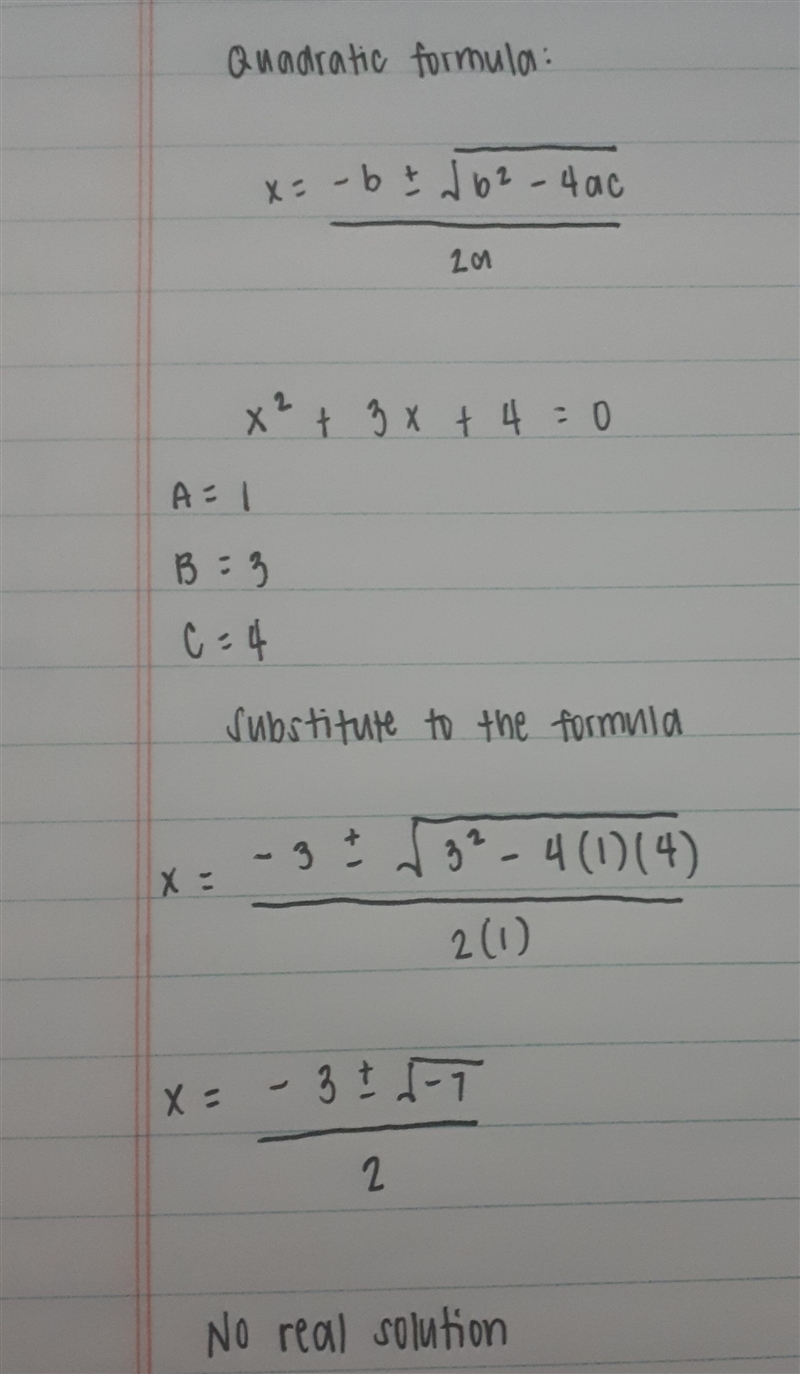 Quadratic formula:
x = -b ± √b² - 4ac
2a
x² + 3x + 4 = 0
A = 1
B = 3
C = 4
Substitute to the formula
x = -3 ± √3² - 4(1)(4)
2(1)
x = -3 ± √-7
2
No real solution